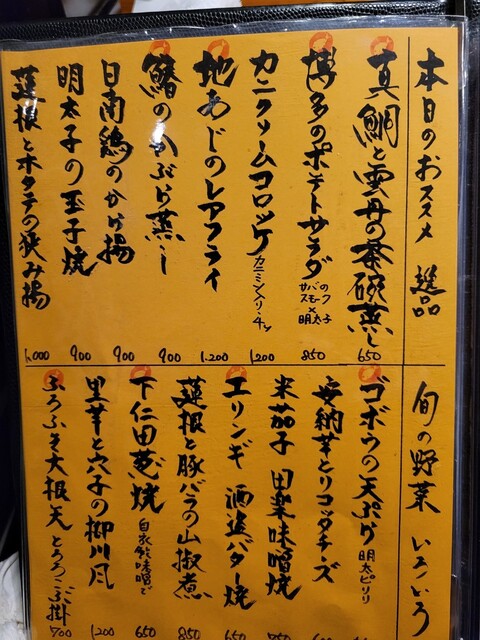 本日のおススメ 逸品
真鯛と雲丹の茶碗蒸し 650
博多のポテトサラダ サバのスモーク×明太子 850
カニクリームコロッケ カニミソ入り・4ヶ 1,200
地あじのレアフライ 1,200
鰆のかぶら蒸し 900
日南鶏のから揚 900
明太子の玉子焼 900
蓮根とホタテの挟み揚 1,000
旬の野菜 いろいろ
ゴボウの天ぷら 明太ピリリ
安納芋とリコッタチーズ
米茄子 田楽味噌焼
エリンギ 酒盗バター焼 650
蓮根と豚バラの山椒煮 850
下仁田葱焼 自衣飴味噌で 650
里芋と穴子の柳川風 1,200
ふろふき大根天 とろろこぶ掛 700